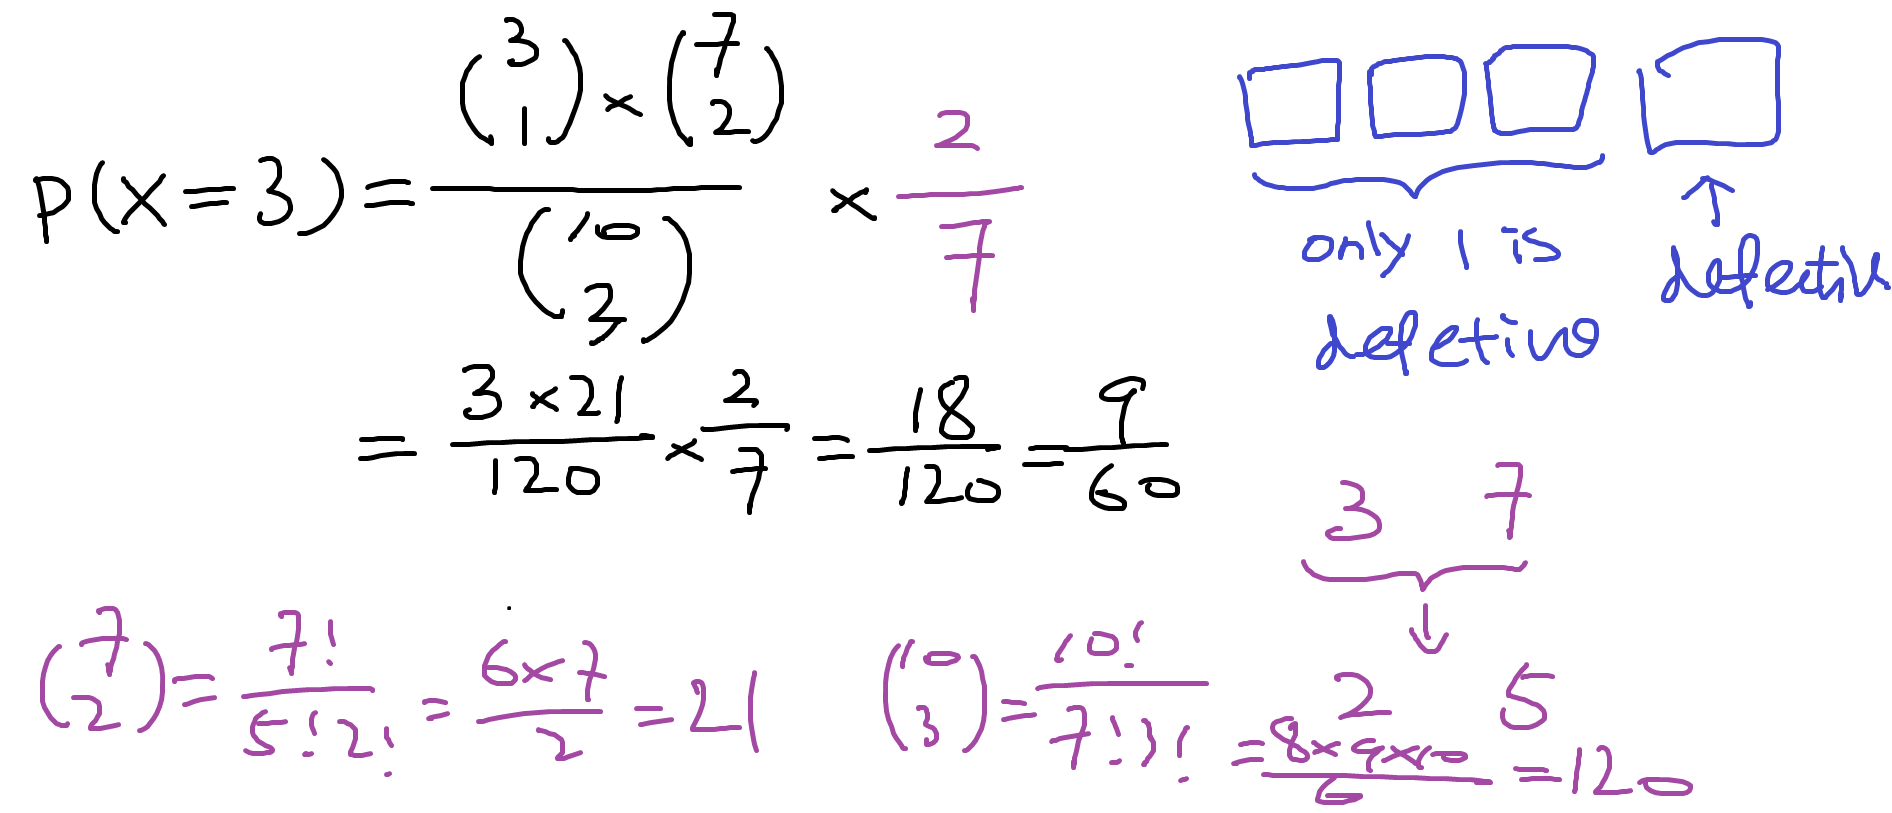 P(X=3) = \frac{\binom{3}{1} × \binom{7}{2}}{\binom{10}{3}} × \frac{2}{7}
= \frac{3×21}{120} × \frac{2}{7} = \frac{18}{120} = \frac{9}{60}
only 1 is
defetive
defective
3 7
2 5
\binom{7}{2} = \frac{7!}{5!2!} = \frac{6×7}{2} = 21
\binom{10}{3} = \frac{10!}{7!3!} = \frac{8×9×10}{6} = 120